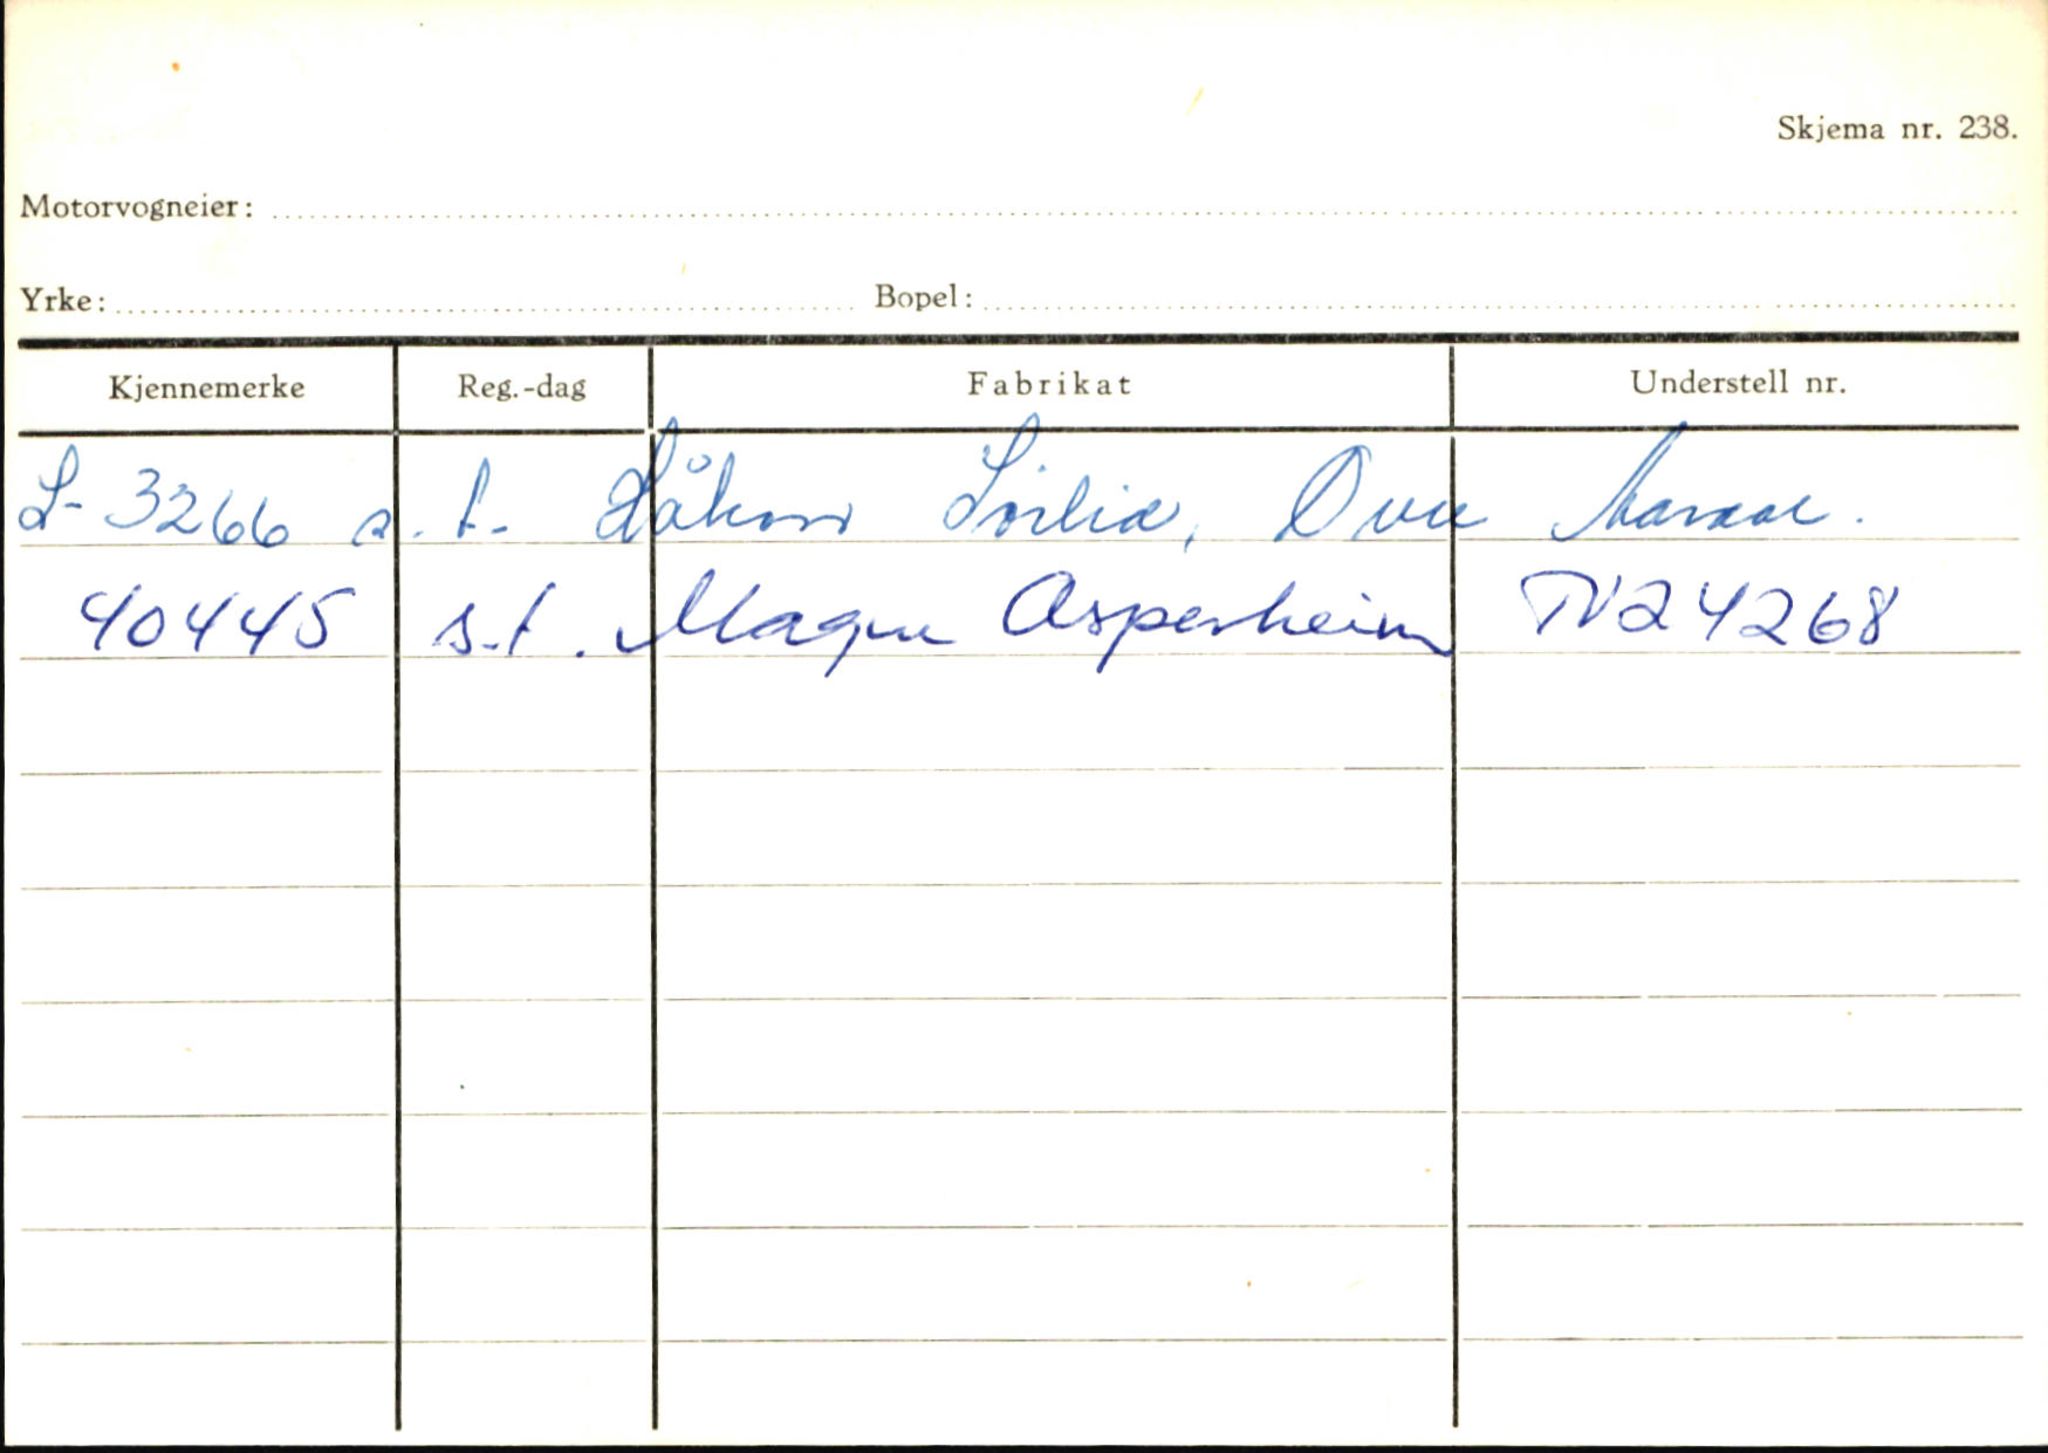 Skjema nr. 238.
Motorvogneier:
Yrke: Bopel:
Kjennemerke Reg.-dag Fabrikat Understell nr.
S-3266 s.t. Håkon Sörlid, Øvre
40445 s.t. Magne Asperheim TV24268